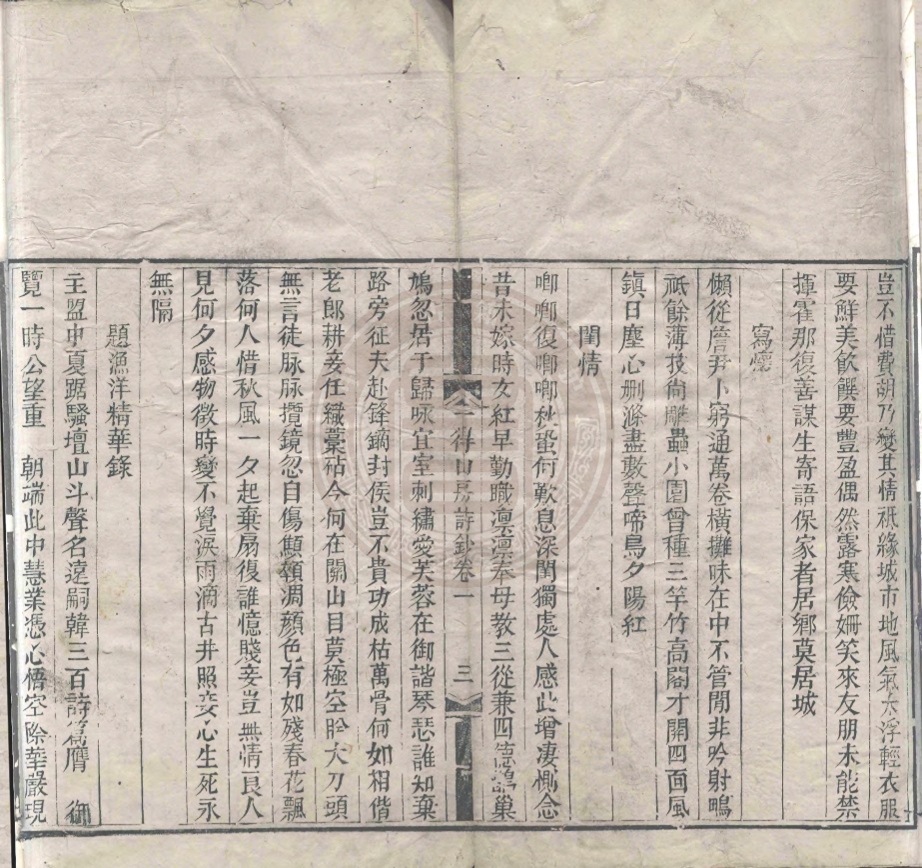 豈不惜費胡乃變其情祇緣城市地風氣太浮輕衣服
要鮮美飲饌要豐盈偶然露寒儉姍笑來友朋未能禁
揮霍那復善謀生寄語保家者居鄉莫居城
寫懷
懶從詹尹卜窮通萬卷橫攤味在中不管閒非吟射鴨
祇餘薄技尚雕蟲小園曾種三竿竹高閣才開四面風
鎮日塵心刪滌盡數聲啼鳥夕陽紅
閨情
唧唧復唧唧秋蛩何歎息深閨獨處人感此增凄惻念
昔未嫁時女紅早勤職凛凛奉母教三從兼四德鵲巢
得山房詩鈔卷一 三
鳩忽居于歸咏宜室刺繡愛芙蓉在御諧琴瑟誰知棄
路旁征夫赴鋒鏑封侯豈不貴功成枯萬骨何如相偕
老郎耕妾任織藁砧今何在關山目莫極空盻大刀頭
無言徒脉脉攬鏡忽自傷顦顇凋顏色有如殘春花飄
落何人惜秋風一夕起棄扇復誰憶賤妾豈無情良人
見何夕感物徵時變不覺淚雨滴古井照妾心生死永
無隔
題漁洋精華錄
主盟中夏踞騷壇山斗聲名遠嗣韓三百詩篇膺 御
覽一時公望重 朝端此中慧業憑心悟空際華嚴現